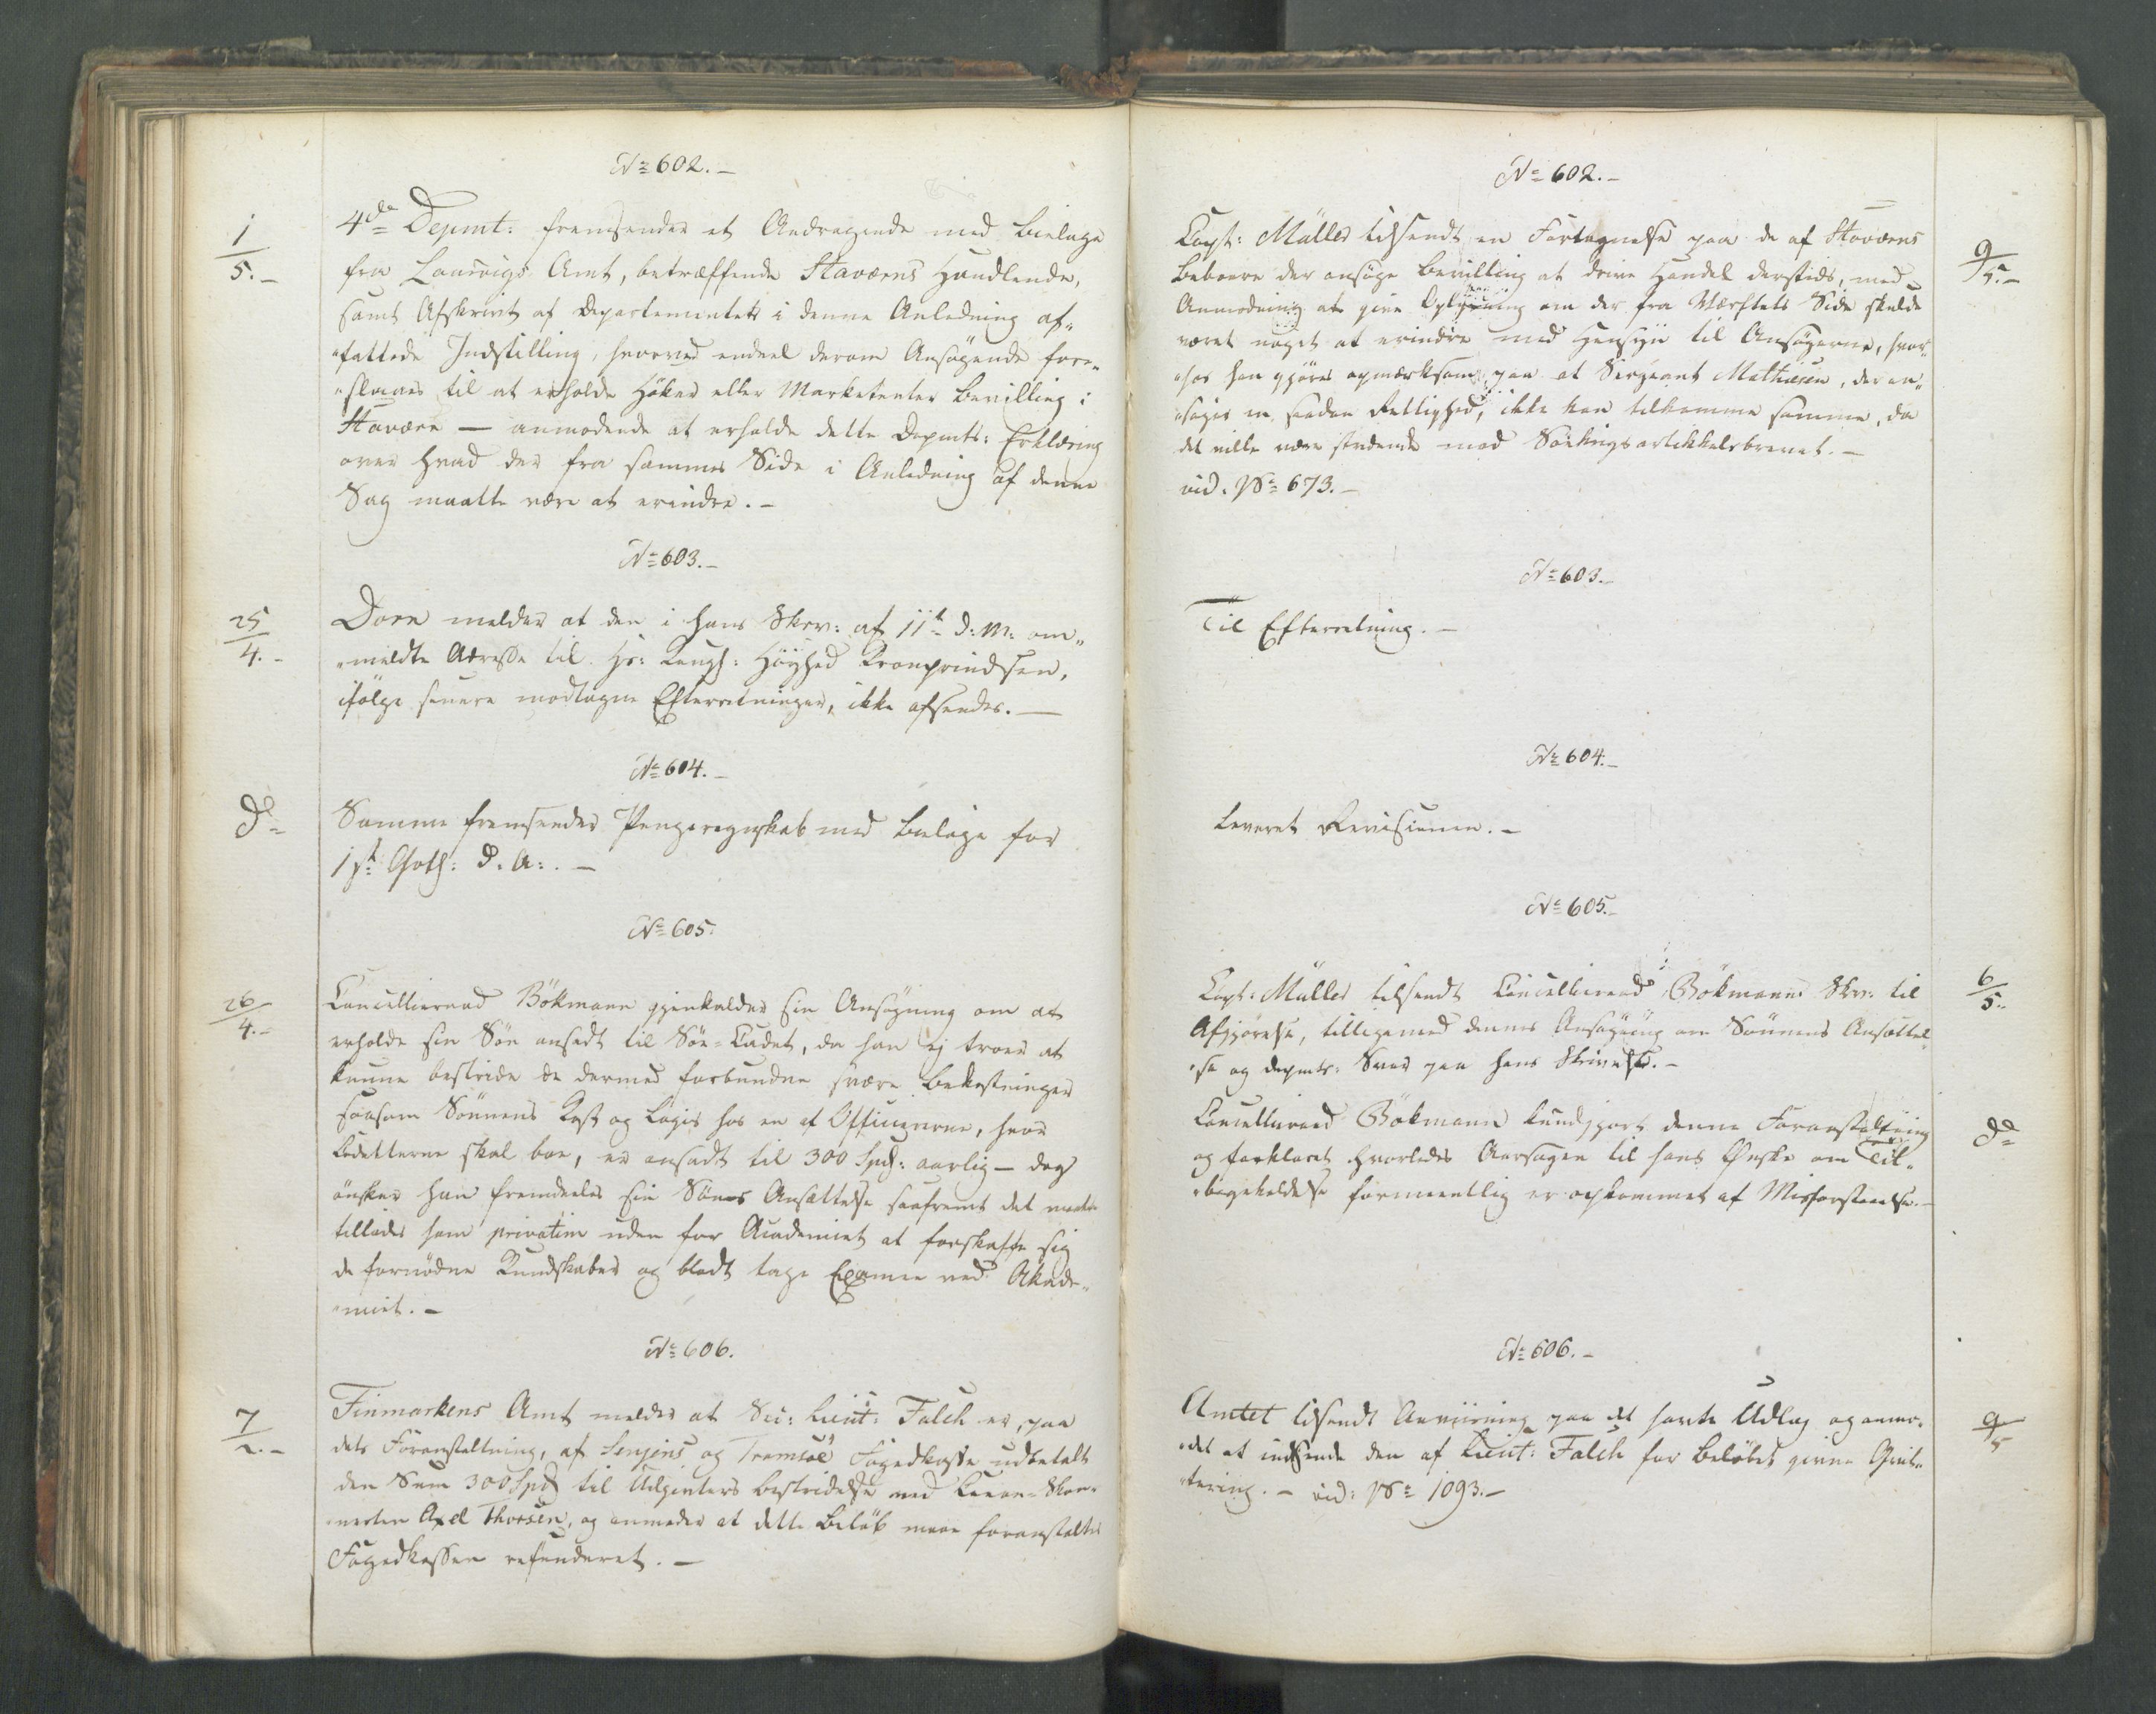 No 602.
1/5.
4de Depmt: fremsender et Andragende med Bielage
fra Laurvigs Amt, betræffende Staværns Handlende,
samt Afskrivt af Departementets i denne Anledning af-
fattede Indstilling, hvorved endeel derom Ansøgende fore-
slaaes til at erholde Høker eller Marketenter Bevilling i
Staværn — anmodende at erholde dette Depmts: Erklæring
over hvad der fra sammes Side i Anledning af denne
Sag maatte være at erindre.
No 603.
25/4.
Dorn melder at den i hans Skrv: af 11t d: M: om-
meldte Adresse til Hs: Kongl: Høyhed Kronprindsen,
ifølge senere modtagne Efterretninger, ikke afsendes.
No 604.
do
Samme fremsender Pengeregnskab med Bielage for
1st d. A:.
No 605.
26/4.
Cancellieraad Bökmann gjenkalder sin Ansøgning om at
erholde sin Søn ansadt til Søe-Cadet, da han ej troer at
kunne bestride de dermed forbundne svære Bekostninger
saasom Sønnens Kost og Logis hos en af Officiererne, hvor
Cadetterne skal boe, er ansadt til 300 Spd: aarlig — dog
ønsker han fremdeles sin Søns Ansættelse saafremt det maatte
tillades ham privatim uden for Academiet at forskaffe sig
de fornødne Kundskaber og blodt tage Examen ved Akade-
miet.
No 606.
7/2.
Finmarkens Amt melder at Sec: Lieut: Falch er, paa
dets Foranstaltning, af Senjens og Tromsöe Fogedkasse udbetalt
den Sum 300 Spd til Udgivters Bestridelse med Kanon-Skon-
nerten Axel Thorsen, og anmoder at dette Beløb maae foranstaltes
Fogedkassen refunderet.
No 602.
9/5.
Capt: Müller tilsendt en Fortegnelse paa de af Staværns
Beboere der ansøge Bevilling at drive Handel dersteds, med
Anmodning at give Oplysning om der fra Værftets Side skulde
været noget at erindre med Hensyn til Ansøgerne, hvor-
hos han gjøres opmærksom paa at Sergeant Mathiesen, der an-
søger en saadan Rettighed, ikke kan tilkomme samme, da
det ville være stridende mod Søekrigsartikkelsbrevet.
vid: No 673.
No 603.
Til Efterretning.
No 604.
Leveret Revisionen.
No 605.
6/5.
Capt: Müller tilsendt Cancellieraad Bökmanns Skrv: til
Afgjørelse, tilligemed dennes Ansøgning om Sønnens Ansættel-
se og Depmts: Svar paa hans Skrivelse.
do
Cancellieraad Bökmann kundgjort denne Foranstaltning
og forklaret hvorledes Aarsagen til hans Ønske om Til-
bageholdelse formeentlig er opkommet af Misforstaaelse.
No 606.
9/5
Amtet tilsendt Anviisning paa det havte Udlæg og anmo-
det at indsende den af Lieut: Falch for Beløbet givne Qvit-
tering. — vid: No 1093.